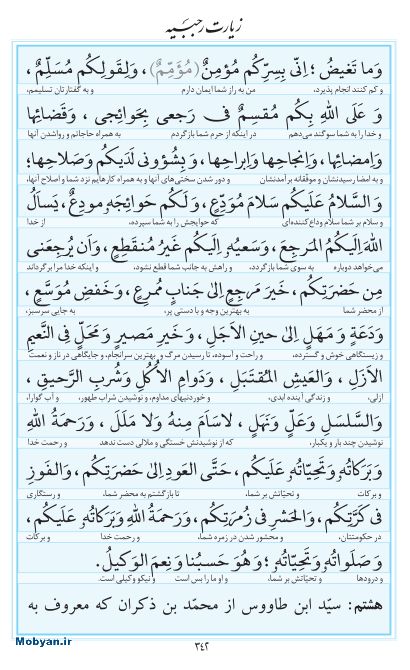 زیارت رجبیّه
وَما تَغیضُ؛ اِنّی بِسِرِّکُم مُؤمِنٌ (مُؤَمِّمٌ)، وَلِقَولِکُم مُسَلِّمٌ،
و کم کنند انجام پذیرد، من به راز شما ایمان دارم و به گفتارتان تسلیمم،
وَ عَلَی اللهِ بِکُم مُقسِمٌ فی رَجعی بِحَوائِجی، وَقَضائِها
و خدا را به شما سوگند می‌دهم در اینکه از حرم شما بازگردم به همراه حاجاتم و روا شدن آنها
وَاِمضائِها، وَاِنجاحِها وَاِبراحِها، وَبِشُؤونی لَدَیکُم وَصَلاحِها؛
و به امضا رسیدنشان و موفقانه برآمدنشان و دور شدن سختی‌های آنها و به همراه کارهایم نزد شما و اصلاح آنها،
وَ السَّلامُ عَلَیکُم سَلامَ مُوَدِّعٍ، وَلَکُم حَوائِجَهُ مودِعٌ، یَسأَلُ
و سلام بر شما سلام وداع‌کننده‌ای که حوایجش را به شما سپرده، از خدا
اللهَ اِلَیکُمُ المَرجِعَ، وَسَعیُهُ اِلَیکُم غَیرُ مُنقَطِعٍ، وَاَن یُرجِعَنی
می‌خواهد دوباره به سوی شما بازگردد، و راهش به جانب شما قطع نشود، و اینکه خدا مرا برگرداند
مِن حَضرَتِکُم، خَیرَ مَرجِعٍ اِلی جَنابٍ مُمرِعٍ، وَخَفضِ مُوَسَّعٍ،
از محضر شما به بهترین وجه و با دستی پر، به جایی سرسبز،
وَدَعَةٍ وَ مَهَلٍ اِلی حینِ الاَجَلِ، وَخَیرِ مَصیرٍ وَمَحَلٍّ فِی النَّعیمِ
و زیستگاهی خوش و گسترده، و راحت و آسوده، تا رسیدن مرگ و بهترین سرانجام، و جایگاهی در ناز و نعمت
الاَزَلِ، وَالعَیشِ المُقتَبَلِ، وَدَوامِ الاُکُلِ وَشُربِ الرَّحیقِ،
ازلی، و زندگی آینده ابدی، و خوردنیهای مداوم، و نوشیدن شراب طهور، و آب گوارا،
وَالسَّلسَلِ وَعَلٍّ وَنَهَلٍ، لاسَاَمَ مِنهُ وَلا مَلَلَ، وَرَحمَةُ اللهِ
نوشیدن چند بار و یکبار، که از نوشیدنش خستگی و ملالی دست ندهد و رحمت خدا
وَبَرَکاتُهُ وَتَحِیّاتُهُ عَلَیکُم، حَتَّی العَودِ اِلی حَضرَتِکُم، وَالفَوزِ
و برکات و تحیّاتش بر شما، تا بازگشتم به محضر شما، و رستگاری
فی کَرَّتِکُم، وَالحَشرِ فی زُمرَتِکُم، وَرَحمَةُ اللهِ وَبَرَکاتُهُ عَلَیکُم،
در حکومتتان، و محشور شدن در زمره شما، و رحمت خدا و برکات
وَصَلَواتُهُ وَتَحِیّاتُهُ؛ وَهُوَ حَسبُنا وَنِعمَ الوَکیلُ.
و درودها و تحیّاتش بر شما، و او ما را بس است و نیکو وکیلی است.
هشتم: سیّد ابن طاووس از محمّد بن ذکران که معروف به
Mobyan.ir
۳۴۲